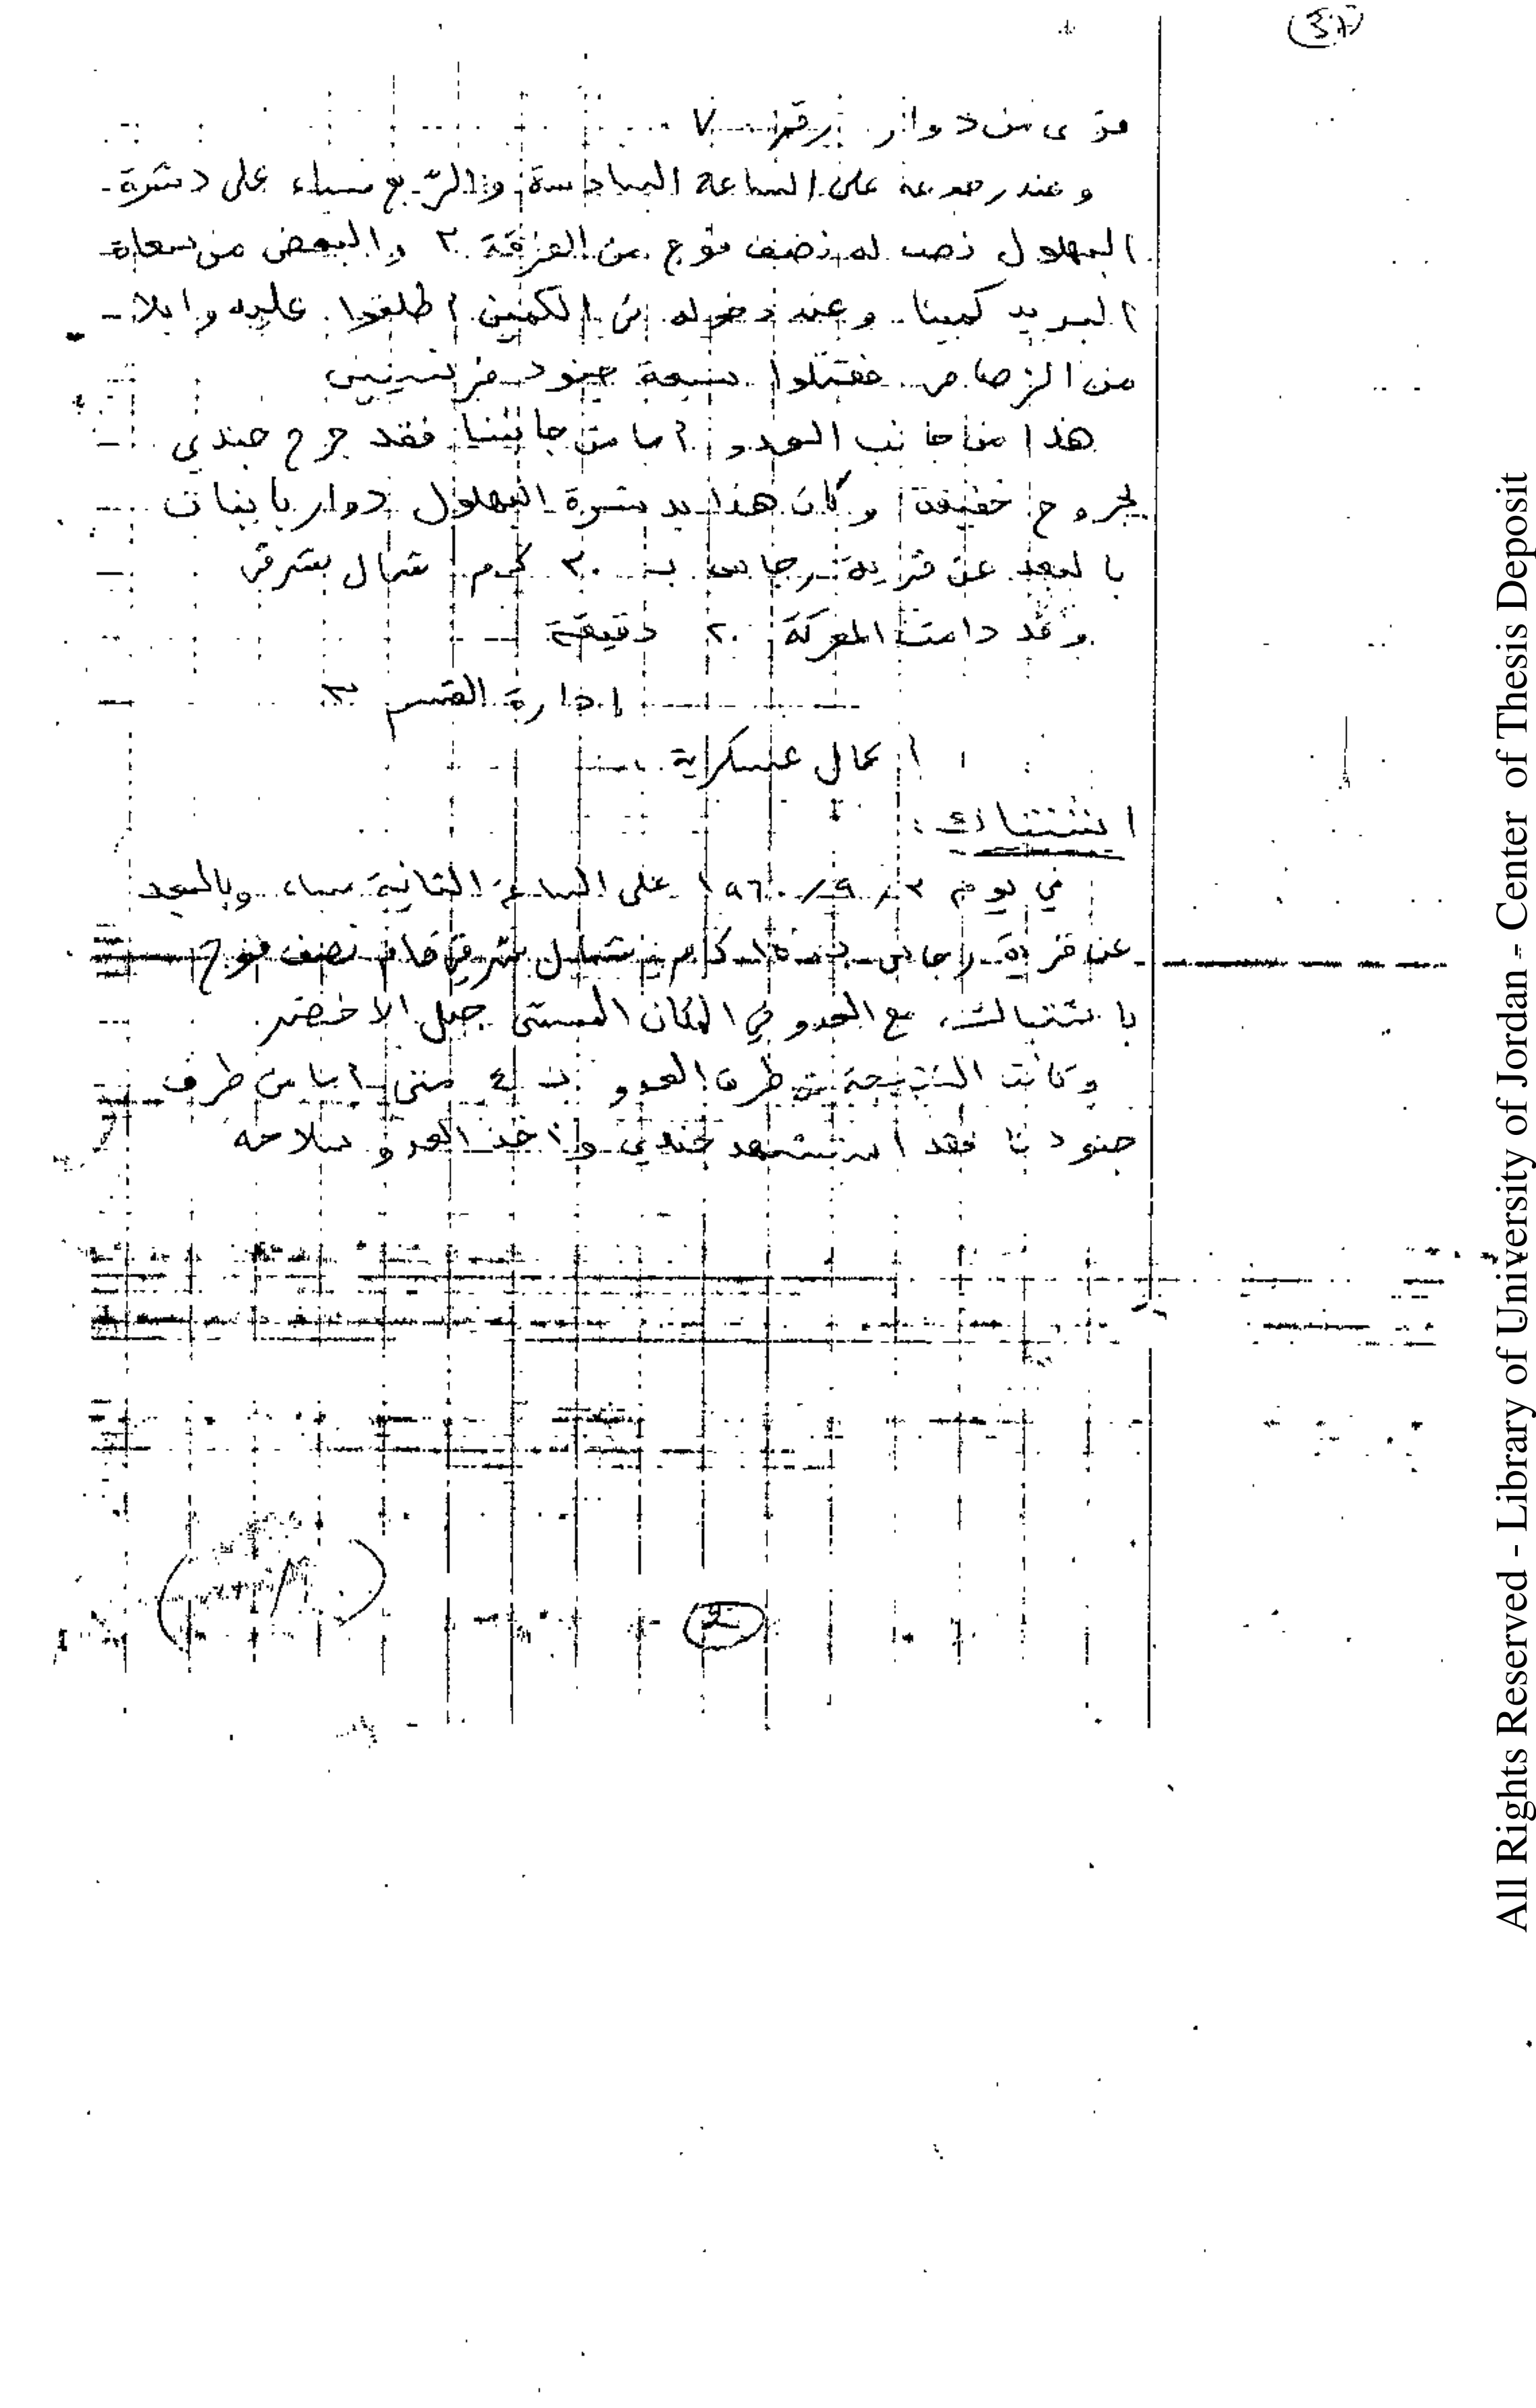 من دوار رقم ٧
وعند رجوعه على الساعة السادسة والربع مساء على دشرة
البهلول نصب له نصف فوج من الفرقة ٢ والبعض من سعاة
البريد كمينا وعند دخوله في الكمين اطلقوا عليه وابلا
من الرصاص فقتلوا سبعة جنود فرنسيين
هذا من جانب العدو اما من جانبنا فقد جرح جندي
بجروح خفيفة وكان هذا بدشرة البهلول دوار
بالبعد عن قرية رجاس ب ٣٠ ك.م شمال شرقي
وقد دامت المعركة ٢٠ دقيقة
ادارة القسم ٣
اعمال عسكرية
اشتباك :
في يوم ٣ / ٩ / ١٩٦٠ على الساعة الثانية مساء وبالبعد
عن قرية رجاس ب ١٥ ك.م شمال شرقي قام نصف فوج
باشتباك مع العدو في المكان المسمى جبل الاخضر
وكانت النتيجة من طرف العدو ب ٤ اما من طرف
جنودنا فقد استشهد جندي واخذ العدو سلاحه
2
All Rights Reserved - Library of University of Jordan - Center of Thesis Deposit